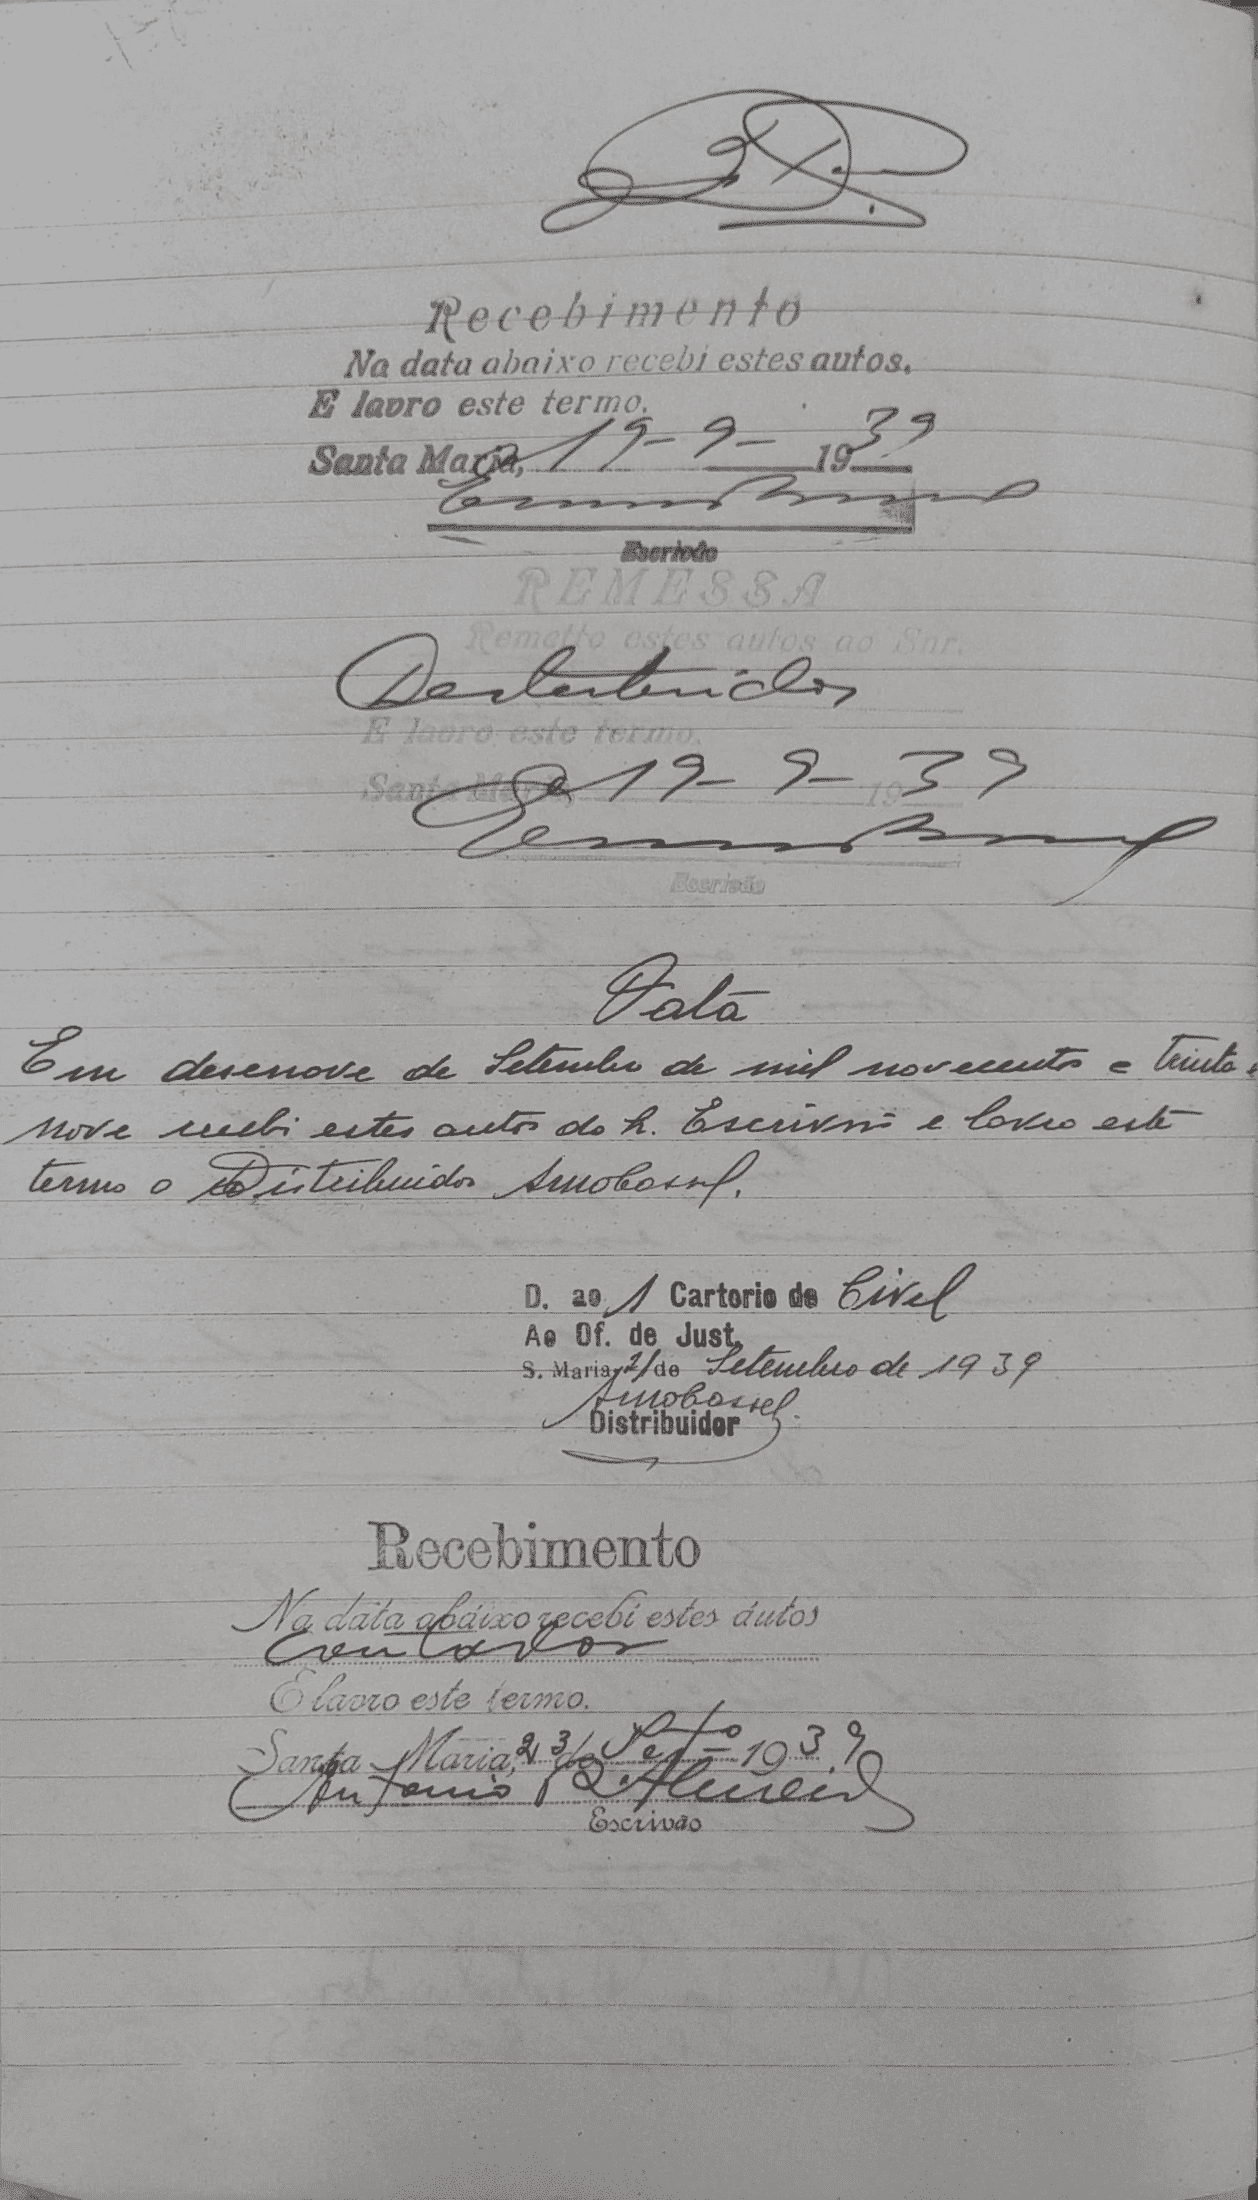 Recebimento
Na data abaixo recebi estes autos.
E lavro este termo.
Santa Maria, 19-9-1939
Escrivão
REMESSA
Remetto estes autos ao Snr.
Destribuidor
E lavro este termo.
Santa Maria, 19-9-1939
Escrivão
Data
Em desenove de Setembro de mil novecentos e trinta e
nove recebi estes autos do Sr. Escrivão e lavro este
termo o Distribuidor
D. ao 1 Cartorio de Civel
Ao Of. de Just.
S. Maria, 21 de Setembro de 1939
Distribuidor
Recebimento
Na data abaixo recebi estes autos
contador
E lavro este termo.
Santa Maria, 23 de Setbro 1939
Antonio Almeida
Escrivão